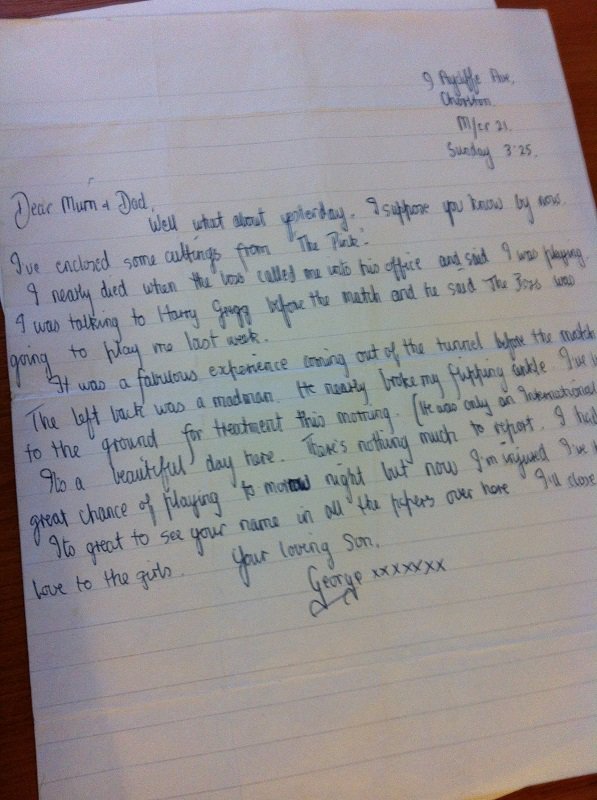 9 Aycliffe Ave,
Chorlton
M/cr 21.
Sunday 3.25.
Dear Mum + Dad,
Well what about yesterday. I suppose you know by now.
I've enclosed some cuttings from "The Pink".
I nearly died when the boss called me into his office and said I was playing.
I was talking to Harry Gregg before the match and he said The Boss was
going to play me last week.
It was a fabulous experience coming out of the tunnel before the match
The left back was a madman. He nearly broke my flipping ankle. I've
to the ground for treatment this morning. (He was only an International
Its a beautiful day here. There's nothing much to report. I had
great chance of playing to morrow night but now I'm injured I've
Its great to see your name in all the papers over here I'll close
love to the girls.
Your loving Son,
George xxxxxxx